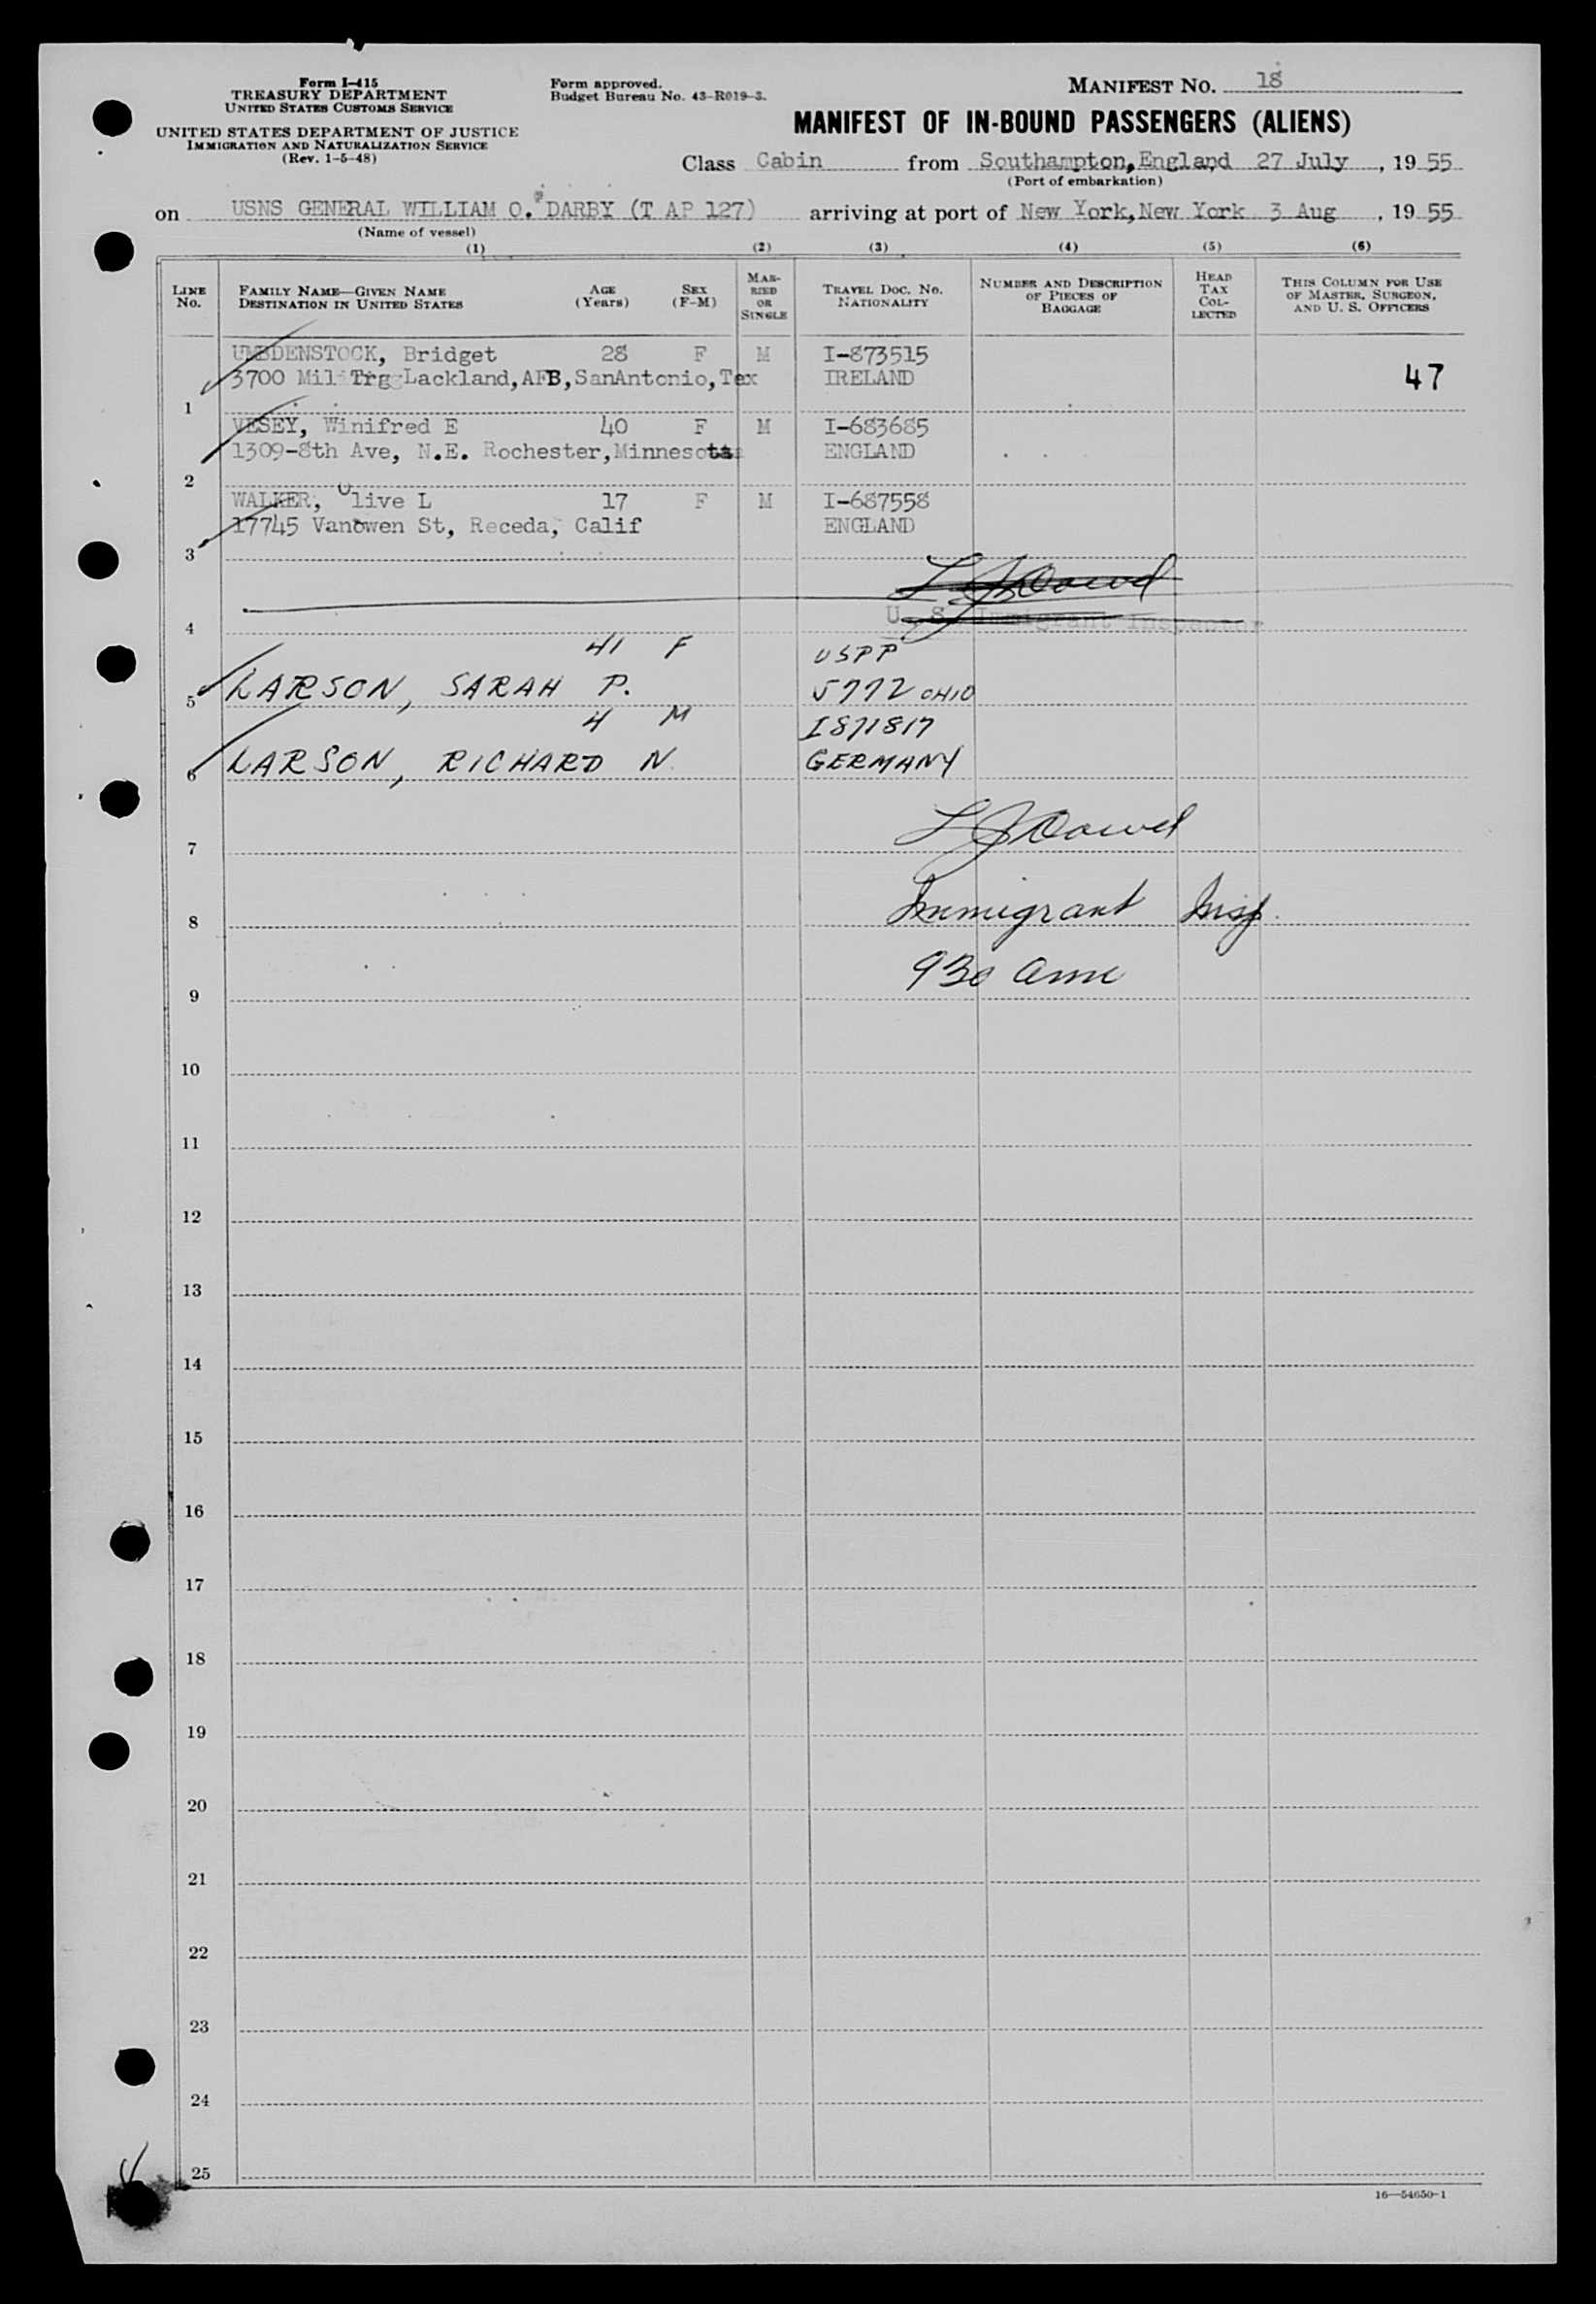 Form I-415
TREASURY DEPARTMENT
UNITED STATES CUSTOMS SERVICE
UNITED STATES DEPARTMENT OF JUSTICE
IMMIGRATION AND NATURALIZATION SERVICE
(Rev. 1-5-48)
Form approved.
Budget Bureau No. 43-R019-3.
MANIFEST NO. 18
MANIFEST OF IN-BOUND PASSENGERS (ALIENS)
Class Cabin from Southampton, England 27 July, 19 55
(Port of embarkation)
on USNS GENERAL WILLIAM O. DARBY (T AP 127) arriving at port of New York, New York 3 Aug, 19 55
(Name of vessel)
(1) (2) (3) (4) (5) (6)
LINE No.
FAMILY NAME—GIVEN NAME
DESTINATION IN UNITED STATES
AGE (Years)
SEX (F-M)
MARRIED OR SINGLE
TRAVEL DOC. NO.
NATIONALITY
NUMBER AND DESCRIPTION OF PIECES OF BAGGAGE
HEAD TAX COLLECTED
THIS COLUMN FOR USE OF MASTER, SURGEON, AND U. S. OFFICERS
UMBDENSTOCK, Bridget 28 F M I-873515
3700 Mil Trg Lackland, AFB, SanAntonio, Tex IRELAND 47
1
VESEY, Winifred E 40 F M I-683685
1309-8th Ave, N.E. Rochester, Minnesota ENGLAND
2
WALKER, Olive L 17 F M I-687558
17745 Vanowen St, Receda, Calif ENGLAND
3
U. S. Immigrant Inspector
4
41 F USPP
5 LARSON, SARAH P. 5772 OHIO
4 M I871817
6 LARSON, RICHARD N GERMANY
7
8 Immigrant Insp.
930 am
9
10
11
12
13
14
15
16
17
18
19
20
21
22
23
24
25
16—54650-1